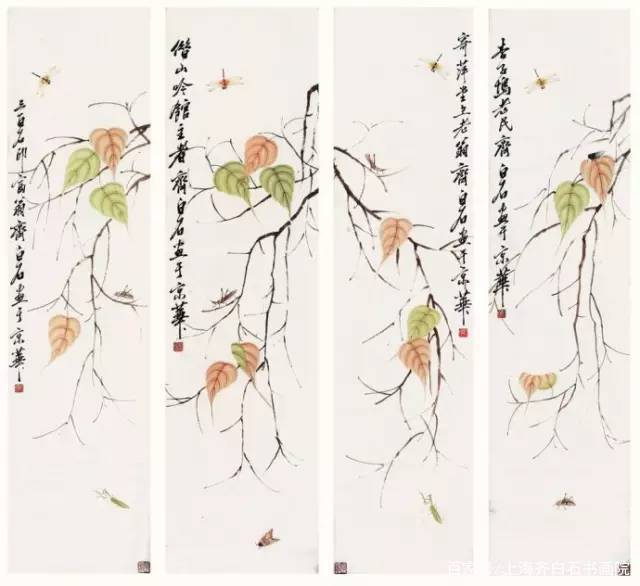 三百石印富翁齊白石画于京華
借山吟館主者齊白石画于京華
寄萍堂上老翁齊白石画于京華
杏子塢老民齊白石画于京華
百家号/上海齐白石书画院